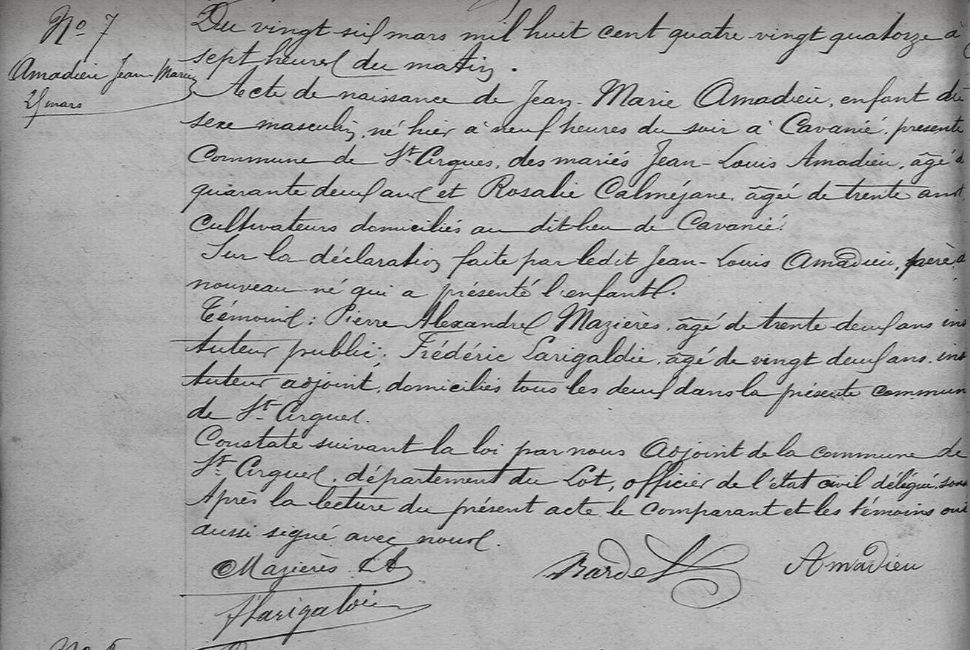 No 7
Amadieu Jean-Marie
25 mars
Du vingt-six mars mil huit cent quatre-vingt quatorze à
sept heures du matin.
Acte de naissance de Jean-Marie Amadieu, enfant du
sexe masculin, né hier à neuf heures du soir à Cavanié, présente
Commune de St Cirgues, des mariés Jean-Louis Amadieu, âgé d
quarante deux ans et Rosalie Calméjane, âgée de trente ans
cultivateurs domiciliés au dit lieu de Cavanié.
Sur la déclaration faite par ledit Jean-Louis Amadieu, père d
nouveau né qui a présenté l'enfant.
Témoins : Pierre Alexandre Mazières, âgé de trente-deux ans ins
tuteur public ; Frédéric Larigaldie, âgé de vingt deux ans, ins
tuteur adjoint, domiciliés tous les deux dans la présente commun
de St Cirgues.
Constaté suivant la loi par nous Adjoint de la commune de
St Cirgues, département du Lot, officier de l'état civil délégué, sous
Après la lecture du présent acte le comparant et les témoins ont
aussi signé avec nous.
Mazières
Bardet
Amadieu
Flarigaldie
No 8